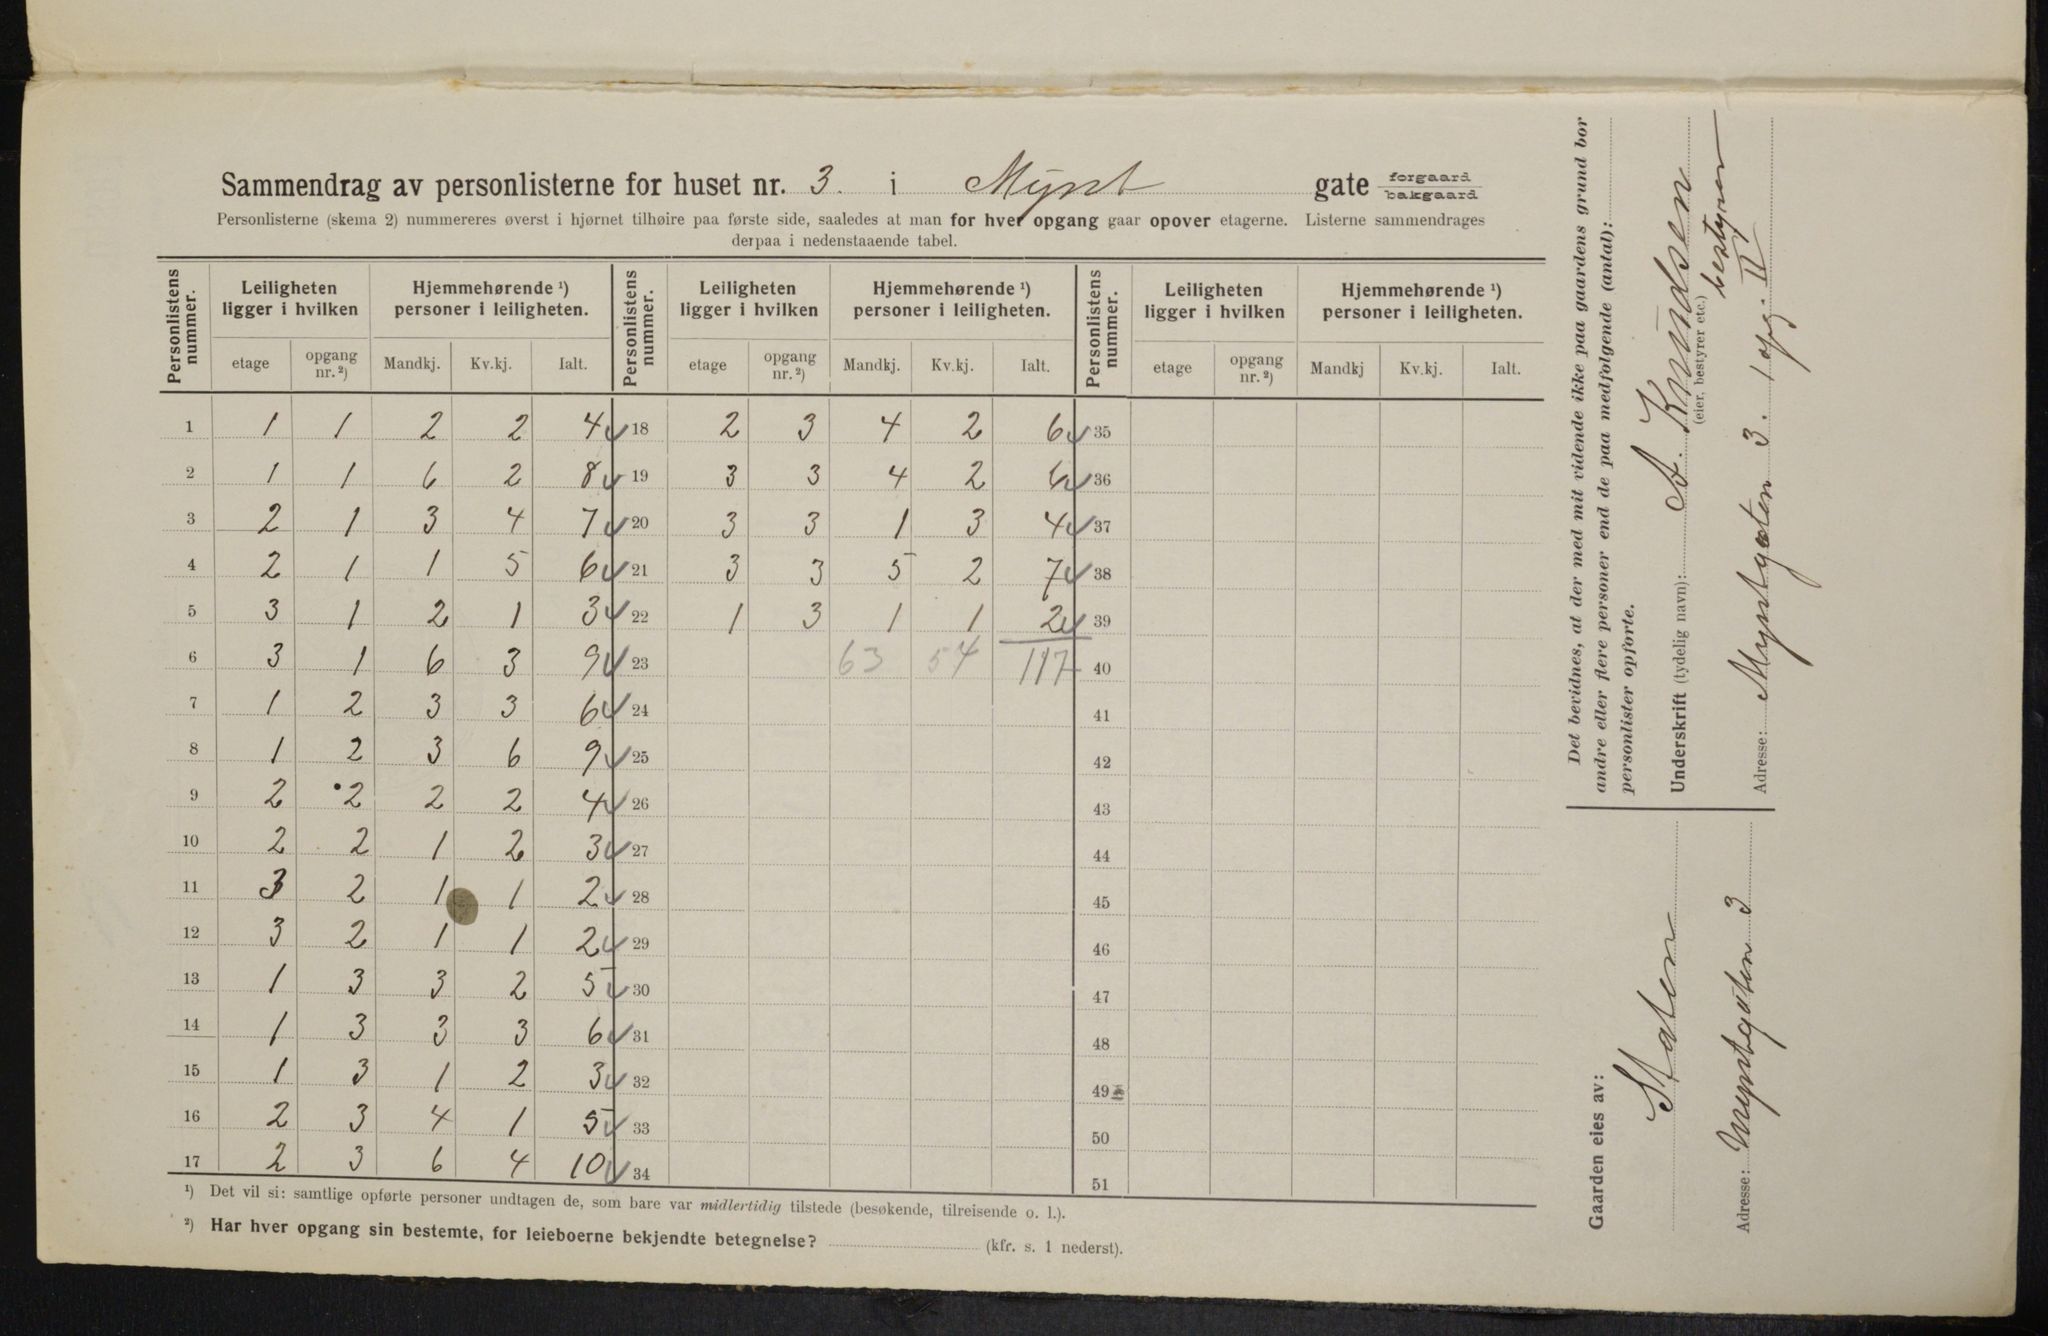 Sammendrag av personlisterne for huset nr. 3. i Mynt gate forgaard bakgaard
Personlisterne (skema 2) nummereres øverst i hjørnet tilhøire paa første side, saaledes at man for hver opgang gaar opover etagerne. Listerne sammendrages
derpaa i nedenstaaende tabel.
Personlistens nummer. Leiligheten ligger i hvilken Hjemmehørende ¹) personer i leiligheten. Personlistens nummer. Leiligheten ligger i hvilken Hjemmehørende ¹) personer i leiligheten. Personlistens nummer. Leiligheten ligger i hvilken Hjemmehørende ¹) personer i leiligheten.
etage opgang nr. ²) Mandkj. Kv.kj. Ialt. etage opgang nr. ²) Mandkj. Kv.kj. Ialt. etage opgang nr. ²) Mandkj Kv.kj. Ialt.
1 1 1 2 2 4 ✓ 18 2 3 4 2 6 ✓ 35
2 1 1 6 2 8 ✓ 19 3 3 4 2 6 ✓ 36
3 2 1 3 4 7 ✓ 20 3 3 1 3 4 ✓ 37
4 2 1 1 5 6 ✓ 21 3 3 5 2 7 ✓ 38
5 3 1 2 1 3 ✓ 22 1 3 1 1 2 ✓ 39
6 3 1 6 3 9 ✓ 23 63 54 117 40
7 1 2 3 3 6 ✓ 24 41
8 1 2 3 6 9 ✓ 25 42
9 2 2 2 2 4 ✓ 26 43
10 2 2 1 2 3 ✓ 27 44
11 3 2 1 1 2 ✓ 28 45
12 3 2 1 1 2 ✓ 29 46
13 1 3 3 2 5 ✓ 30 47
14 1 3 3 3 6 ✓ 31 48
15 1 3 1 2 3 ✓ 32 49
16 2 3 4 1 5 ✓ 33 50
17 2 3 6 4 10 ✓ 34 51
¹) Det vil si: samtlige opførte personer undtagen de, som bare var midlertidig tilstede (besøkende, tilreisende o. l.).
²) Har hver opgang sin bestemte, for leieboerne bekjendte betegnelse? (kfr. s. 1 nederst).
Gaarden eies av:
Staten
Adresse: Myntgaten 3
Det bevidnes, at der med mit vidende ikke paa gaardens grund bor
andre eller flere personer end de paa medfølgende (antal):
personlister opførte.
Underskrift (tydelig navn): A. Knudsen
(eier, bestyrer etc.) bestyrer
Adresse: Myntgaten 3. opg. II